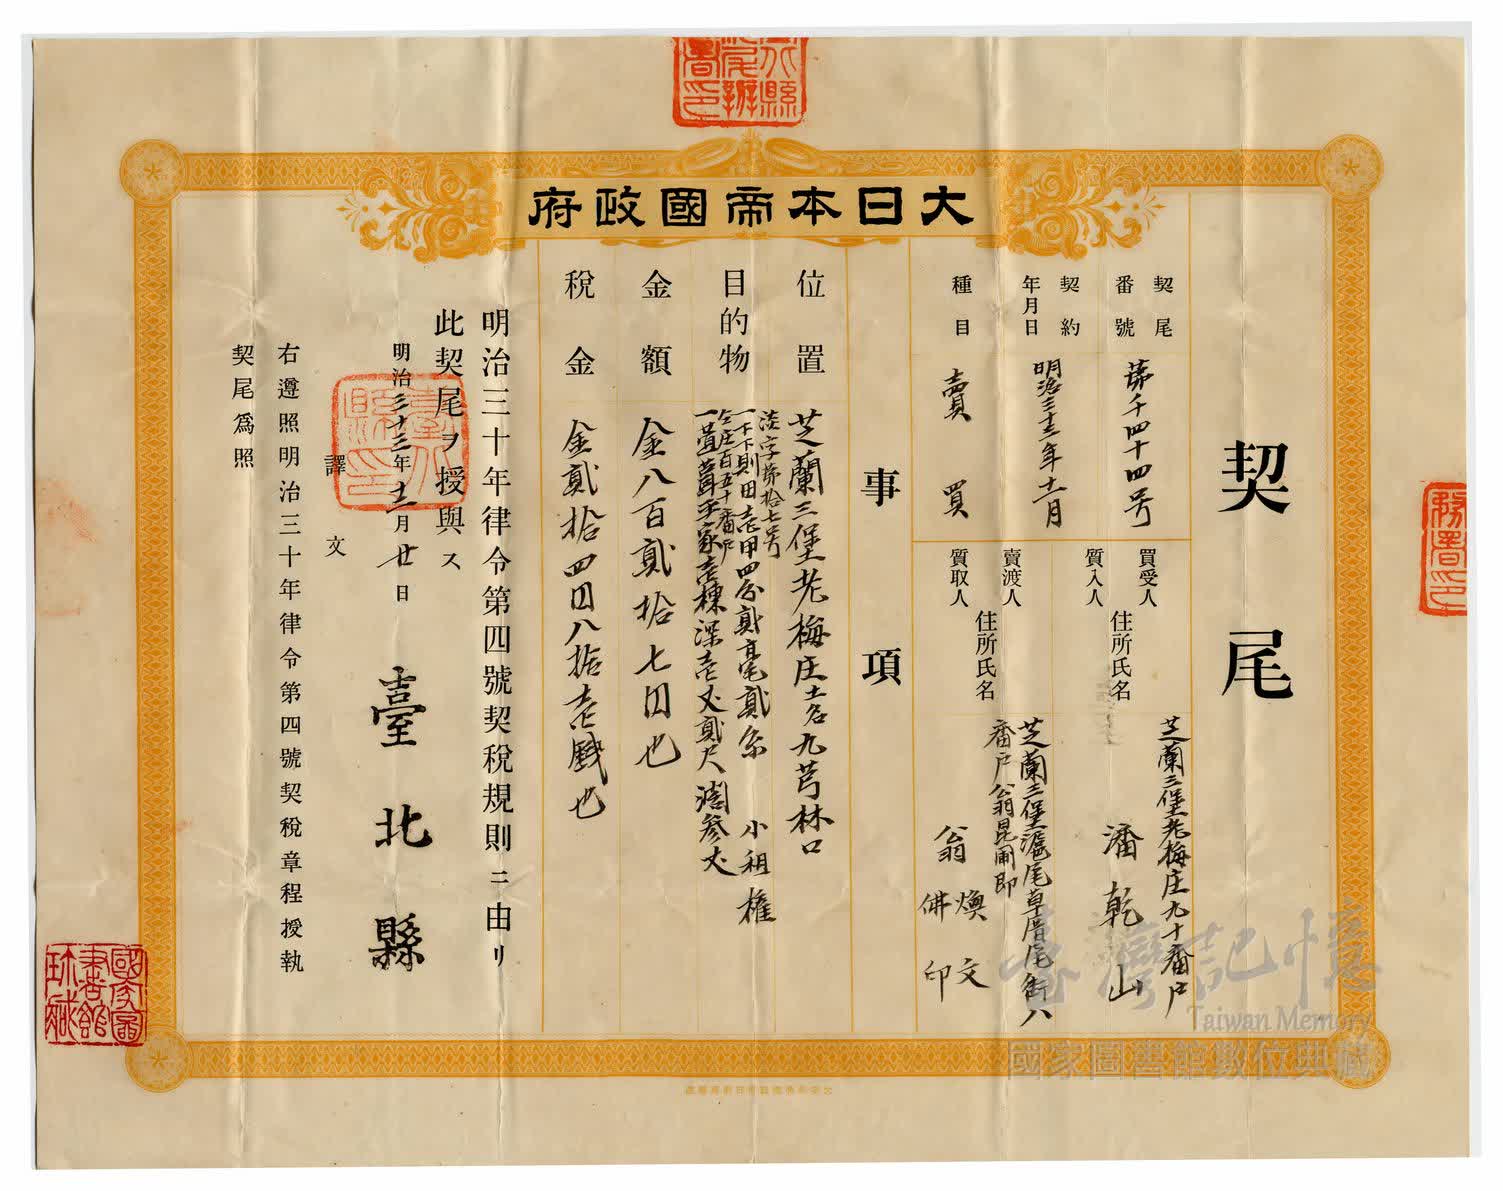 大日本帝國政府
契尾
契尾番號
第千四十四号
契約年月日
明治三十三年十二月
種目
賣買
買受人
質入人
住所氏名
芝蘭三堡老梅庄九十番戶
潘乾山
賣渡人
質取人
住所氏名
芝蘭三堡滬尾草厝尾街八
番戶翁昆開即
翁煥文
佛印
事項
位置
芝蘭三堡老梅庄土名九芎林口
目的物
淡字第拾七号
一下下則田壱甲四分貳毫貳糸 小租權
仝庄百五十番戶
一瓦葺平家壱棟深壱丈貳尺濶參丈
金額
金八百貳拾七円也
稅金
金貳拾四円八拾壱錢也
明治三十年律令第四號契稅規則ニ由リ
此契尾ヲ授與ス
明治三十三年十二月廿七日
臺北縣
譯文
右遵照明治三十年律令第四號契稅章程授執
契尾爲照
臺北縣印
務署印
國家圖書館珍藏
臺灣記憶
Taiwan Memory
國家圖書館數位典藏